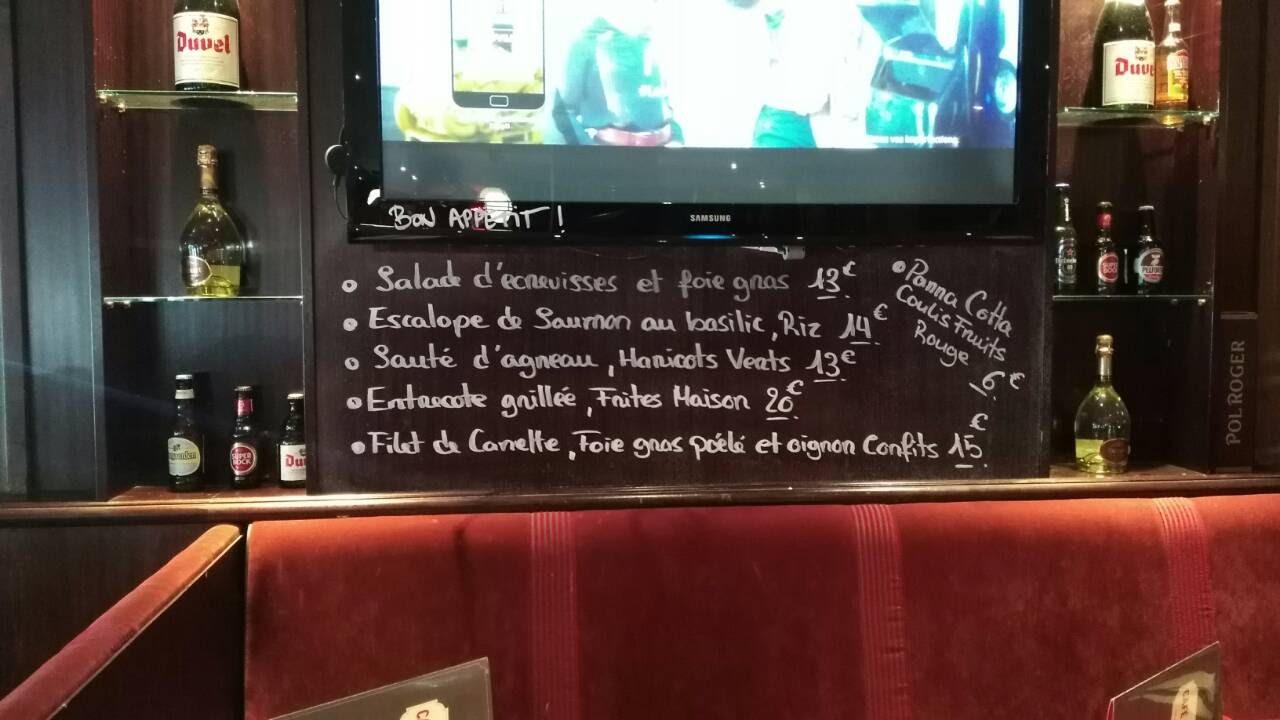 Duvel
Duvel
BON APPETIT !
SAMSUNG
• Salade d'ecrevisses et foie gras 13€
• Escalope de Saumon au basilic, Riz 14€
• Sauté d'agneau, Haricots Verts 13€
• Entrecote grillée, Frites Maison 20€
• Filet de Canette, Foie gras poélé et oignon Confits 15€
• Panna Cotta
Coulis Fruits
Rouge
6€
SUPER BOCK
SUPER BOCK
POL ROGER